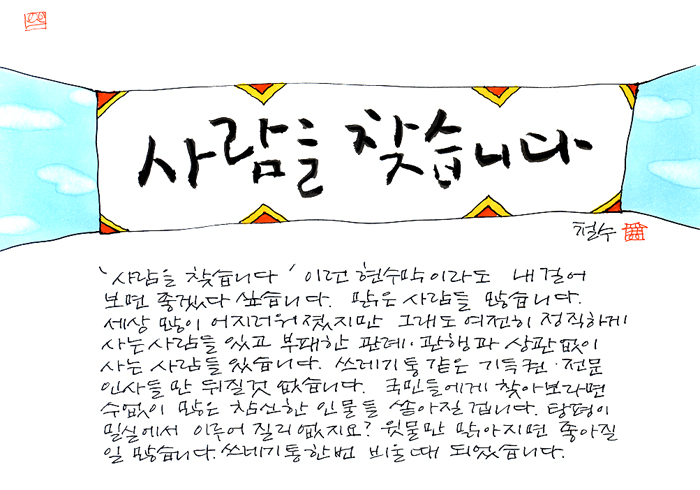 사람을 찾습니다
철수
'사람을 찾습니다' 이런 현수막이라도 내걸어
보면 좋겠다 싶습니다. 맑은 사람들 많습니다.
세상 많이 어지러워졌지만 그래도 여전히 정직하게
사는 사람들 있고 부패한 관례·관행과 상관없이
사는 사람들 있습니다. 쓰레기통 같은 기득권·전문
인사들만 뒤질것 없습니다. 국민들에게 찾아보라면
수없이 많은 참신한 인물들 쏟아질겁니다. 탕평이
밀실에서 이루어 질리 없지요? 윗물만 맑아지면 좋아질
일 많습니다. 쓰레기통 한번 비울때 되었습니다.